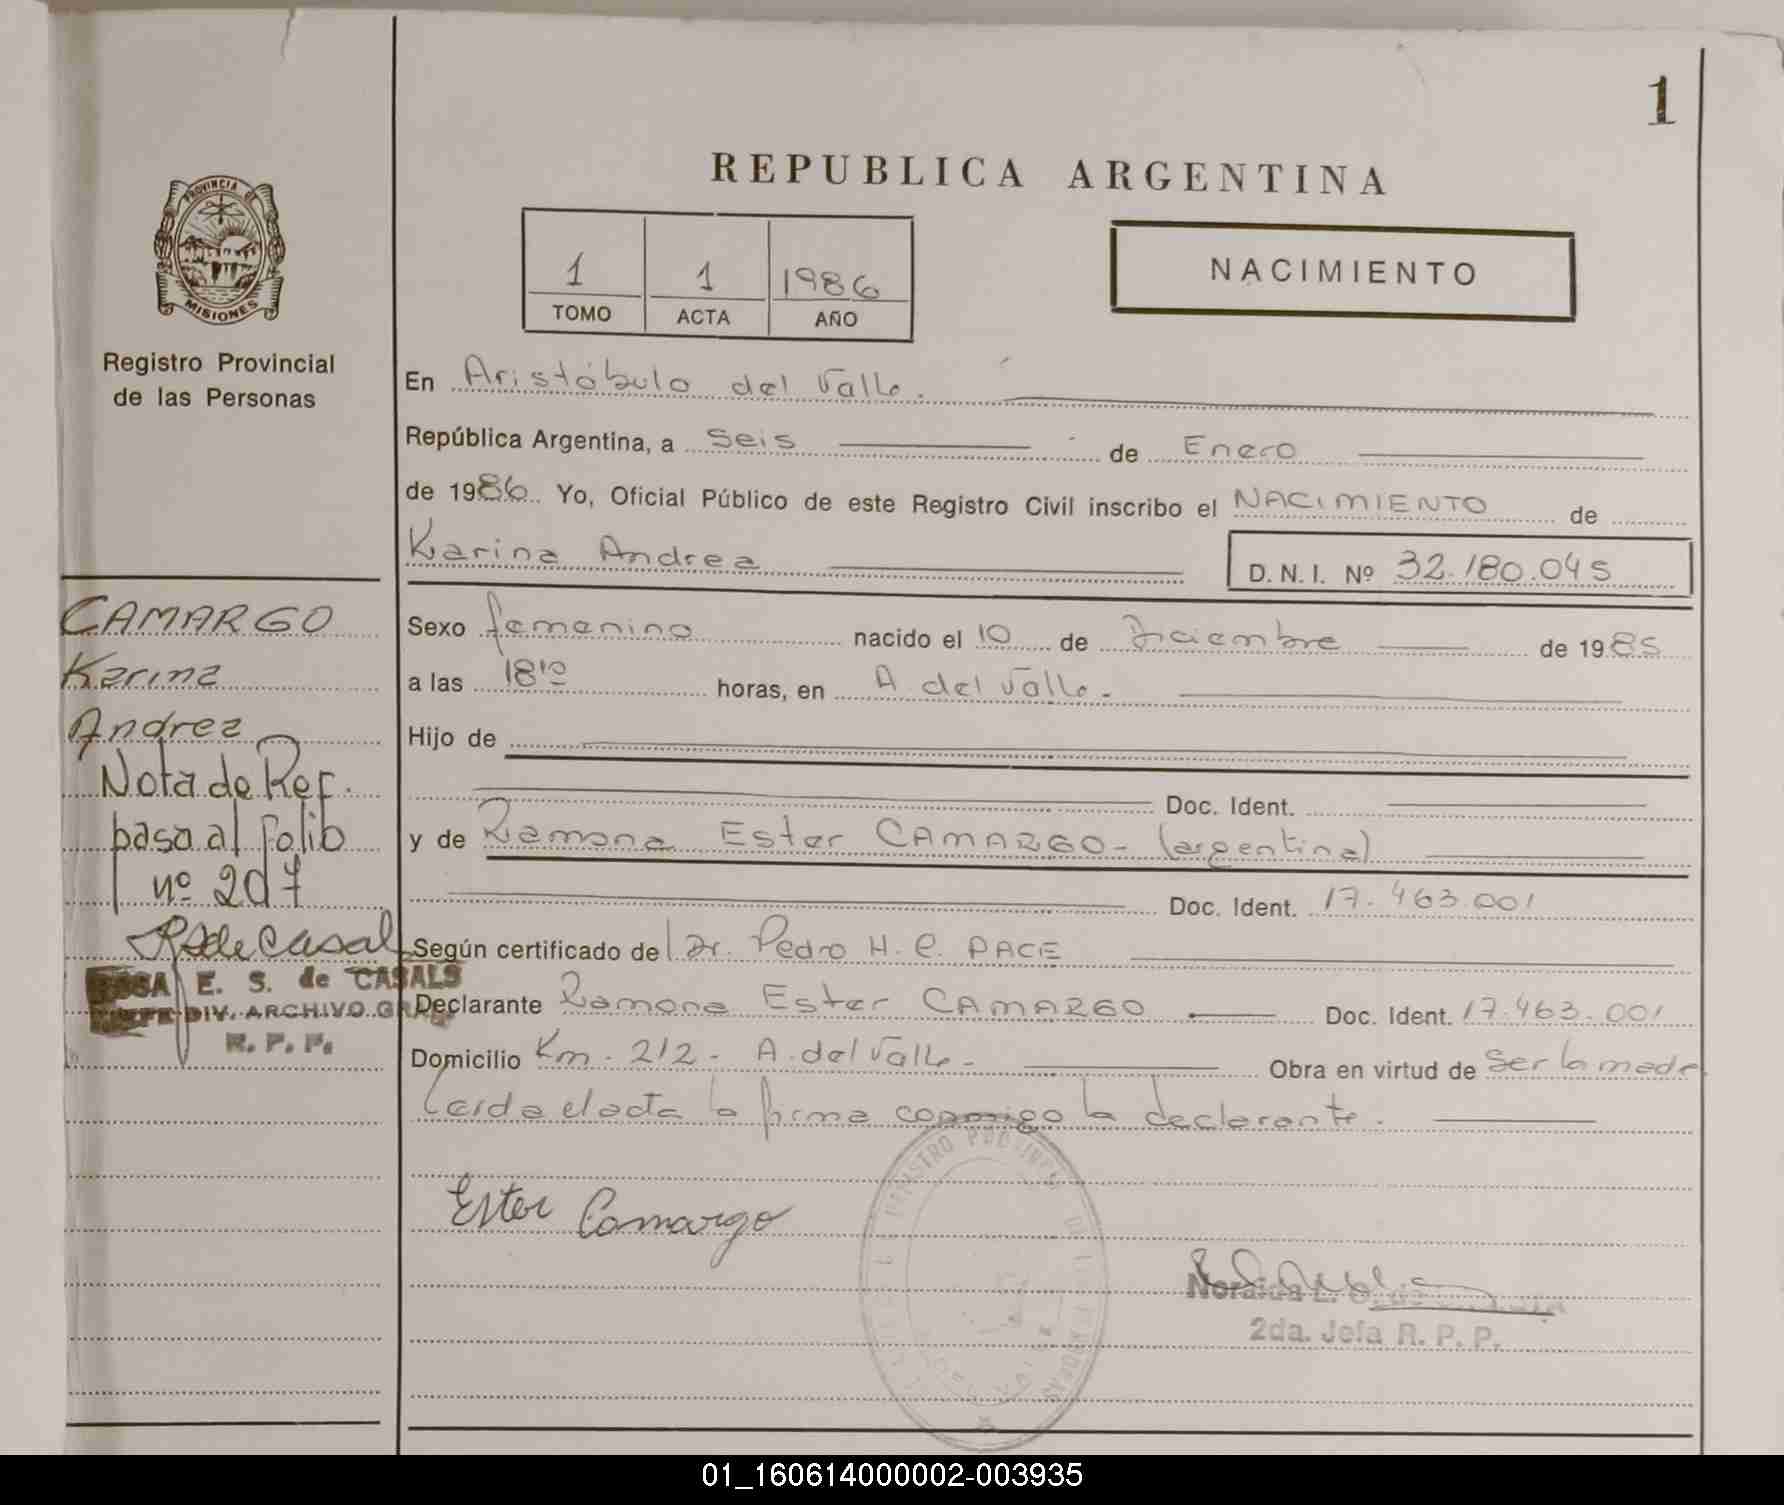 1
REPUBLICA ARGENTINA
PROVINCIA DE
MISIONES
Registro Provincial
de las Personas
1 1 1986
TOMO ACTA AÑO
NACIMIENTO
En Aristóbulo del Valle.
República Argentina, a seis de Enero
de 1986 Yo, Oficial Público de este Registro Civil inscribo el NACIMIENTO de
Karina Andrea
D. N. I. Nº 32.180.045
Sexo femenino nacido el 10 de Diciembre de 1985
a las 18 10 horas, en A. del Valle.
Hijo de
Doc. Ident.
y de Ramona Ester CAMARGO - (argentina)
Doc. Ident. 17.463.001
Según certificado de Dr. Pedro H. C. PACE
Declarante Ramona Ester CAMARGO Doc. Ident. 17.463.001
Domicilio Km. 212 - A. del Valle. Obra en virtud de ser la madre
Leida el acta la firma conmigo la declarante.
Ester Camargo
2da. Jefa R. P. P.
CAMARGO
Karina
Andrea
Nota de Ref.
pasa al folio
nº 207
R S de Casal
ROSA E. S. de CASALS
JEFE DIV. ARCHIVO GRAL
R. P. P.
01_160614000002-003935